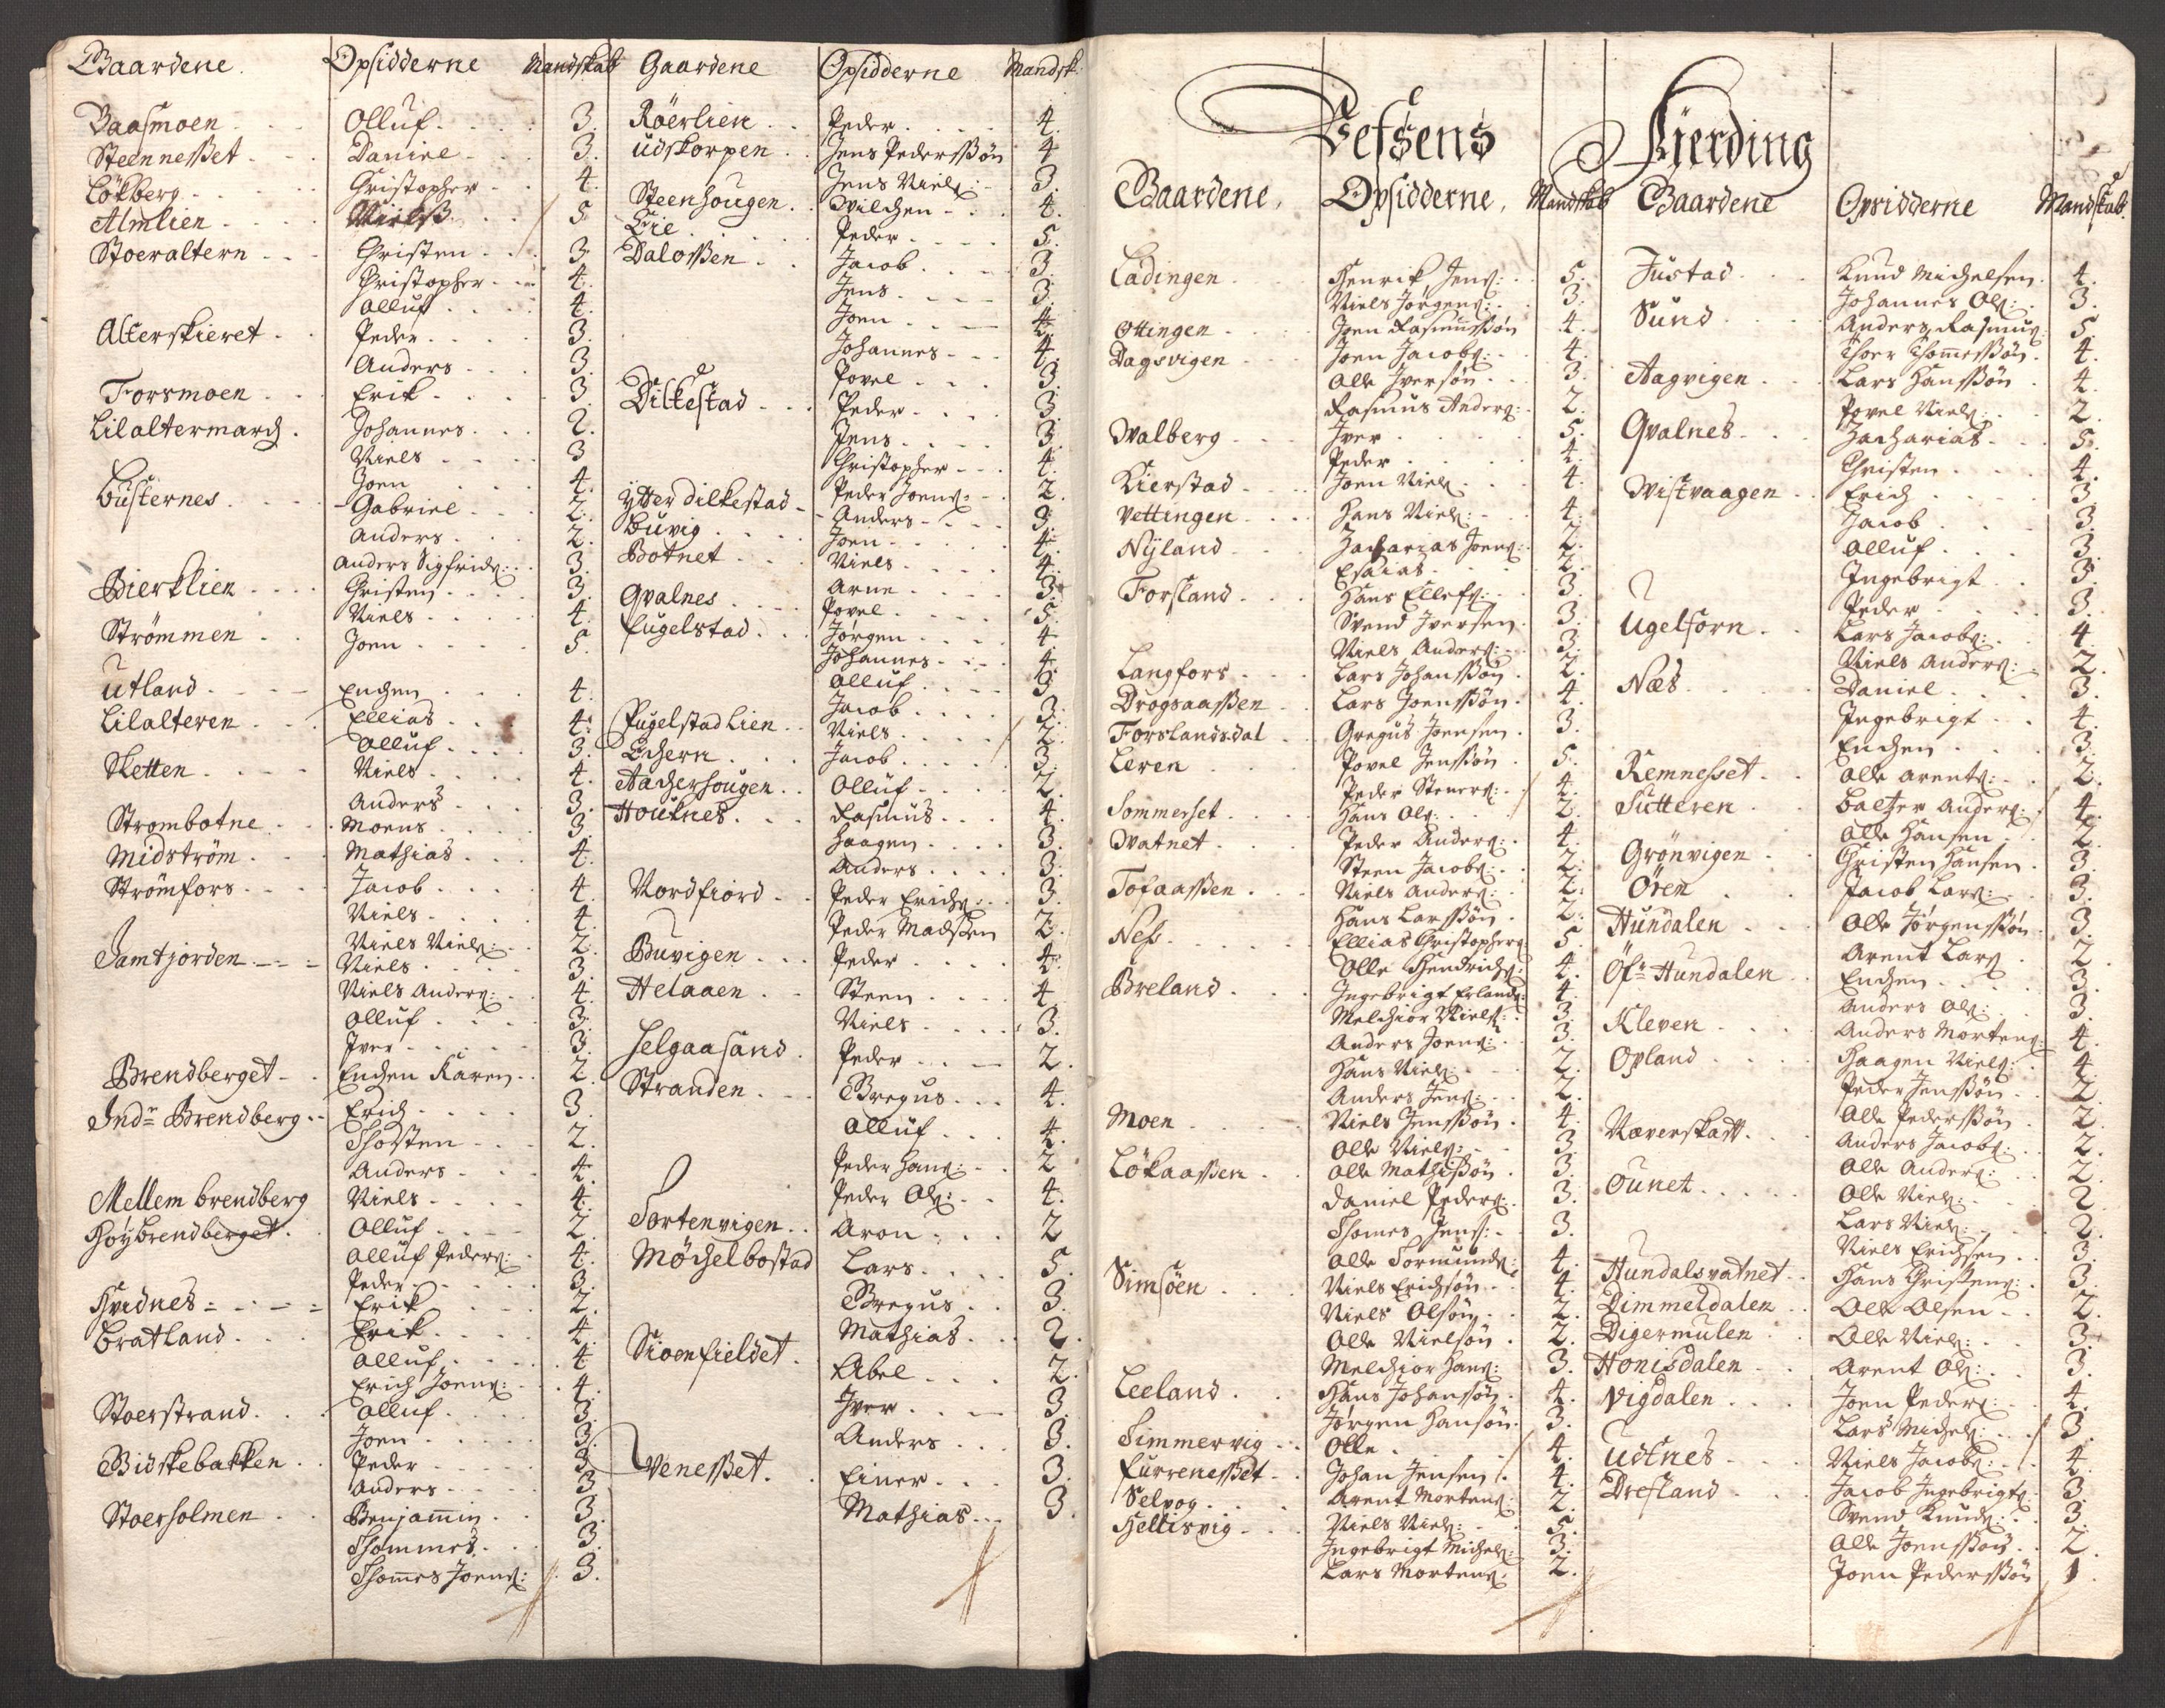 Gaardene. Opsidderne Mandskab
Baasmoen Olluf 3.
Steennesset Daniel 3.
Lökberg Christopher 4.
Almlien Nielss 5
Stoeraltern Christen 3.
Christopher 4.
Olluf 4.
Alterskieret Peder 3.
Anders 3.
Forsmoen Erik 3.
Lilaltermarch Johannes 2.
Niels 3
Joen 4.
Busternes Gabriel 2.
Anders 2.
Anders Sigfrids: 3.
Bierklien Christen 3.
Niels 4.
Strömmen Joen 5.
Utland Enchen 4.
Lilalteren Ellias 4.
Olluf 3.
Sletten Niels 4.
Anders 3.
Strombotne Moens 3.
Midström Mathias 4.
Strömfors Jacob 4.
Niels 4.
Niels Niels: 2.
Jamtjorden Niels 3.
Niels Anders: 4.
Olluf 3.
Iver 3.
Brendberget Enchen Karen 2.
Indr Brendberg Erich 3.
Thosten 2.
Anders 4.
Mellem brendberg Niels 4.
Höybrendberget Olluf 2.
Olluf Peders: 4.
Peder 3.
Hvidnes Erik 2.
Bratland Erik 4.
Olluf 4
Erich Joens: 4.
Stoerstrand Olluf 3.
Joen 3.
Bidskebakken Peder 3
Anders 3
Stoerholmen Benjamin 3.
Thommes 3.
Thomes Joens: 3.
Gaardene Opsidderne Mandsk:
Röerlien Peder 4.
Udskorpen Jens Pederssön 4
Jens Niels: 3.
Steenhougen Wilchen 4.
Lie Peder 5.
Dalossen Jacob 3.
Jens 3.
Joen 4.
Johannes 4.
Povel 3.
Dilkestad Peder 3.
Jens 3.
Christopher 4.
Ytter dilkestad Peder Joens: 2.
Anders 3.
Buvig Joen 4.
Botnet Niels 4.
Arne 3.
Qvalnes Povel 5.
Fugelstad Jörgen 4
Johannes 4.
Olluf 3
Jacob 3.
Fugelstad Lien Niels 2.
Echern Jacob 3.
Aacherhougen Olluf 2.
Houknes Rasmus 4.
Haagen 3.
Anders 3.
Nordfiord Peder Erichs: 3.
Peder Madsen 2.
Buvigen Peder 4.
Helaaen Steen 4.
Niels 3.
Selgaasand Peder 2.
Stranden Gregus 4.
Olluf 4.
Peder Hans: 2
Peder Ols: 4.
Sortenvigen Aron 2
Möchelbostad Lars 5.
Gregus 3.
Mathias 2.
Sioenfieldet Abel 2.
Iver 3.
Anders 3.
Venesset Einer 3.
Mathias 3.
Vefsens Fjerding
Gaardene, Opsidderne, Mandskab
Ladingen Henrik Jens: 5.
Niels Jörgens: 3.
Ottingen Joen Rasmussön 4.
Dagsvigen Joen Jacobs: 4.
Olle Iversön 3.
Rasmus Anders: 2.
Walberg Iver 5.
Peder 4.
Kierstad Joen Niels: 4.
Vettingen Hans Niels: 4.
Nyland Zacharias Joens: 2.
Esaias 2.
Forsland Hans Ellefs: 3.
Svend Iversen 3.
Niels Anders: 3.
Langfors Lars Johanssön 2.
Drogsaassen Lars Joenssön 4.
Forslandsdal Gregus Joensen 3.
Leren Povel Jenssön 5.
Peder Steners: 4.
Sommerset Hans Ols: 2.
Watnet Peder Anders: 4.
Steen Jacobs: 2.
Tofaassen Niels Anders: 2.
Hans Larssön 2.
Ness Ellias Christophers: 5.
Olle Hendrichs: 4.
Breland Ingebrigt Erlands: 4.
Melchior Niels: 3.
Anders Joens: 3.
Hans Niels: 2.
Anders Jens: 2.
Moen Niels Jenssön 4.
Olle Niels: 3
Lökaassen Olle Mathissön 3.
Daniel Peders: 3.
Thomes Jens: 3.
Olle Tormunds: 4.
Simsöen Niels Erichsön 4.
Niels Olsön 2.
Olle Nielsön 2.
Melchior Hans: 3.
Leeland Hans Johansön 4.
Jörgen Hansön 3.
Simmervig Olle 4.
Furrenesset Johan Jensen 4.
Selvog Arent Mortens: 2.
Hellisvig Niels Niels: 5.
Ingebrigt Michels: 3.
Lars Mortens: 2.
Gaardene Opsidderne Mandskab.
Justad Knud Michelsen 4.
Johannes Ols: 3.
Sund Anders Rasmus: 5
Thoer Thomessön 4.
Aagvigen Lars Hanssön 4.
Povel Niels: 2.
Qvalnes Zacharias 5.
Christen 4.
Wistvaagen Erich 3
Jacob 3.
Olluf 3.
Ingebrigt 3.
Peder 3.
Ugelforn Lars Jacobs: 4.
Niels Anders: 2.
Næs Daniel 3.
Ingebrigt 4.
Enchen 3.
Remnesset Olle Arents: 2.
Sutteren Baltzer Anders: 4.
Olle Hansen 2.
Grönvigen Christen Hansen 3.
Ören Jacob Lars: 3.
Hundalen Olle Jörgenssön 3.
Arent Lars: 2.
Öfr Hundalen Enchen 3.
Anders Ols: 3.
Kleven Anders Mortens: 4.
Opland Haagen Niels: 4.
Peder Jenssön 2.
Olle Pederssön 2.
Næverskatt Anders Jacobs: 2.
Olle Anders: 2.
Ounet Olle Niels: 2
Lars Niels: 2.
Niels Erichsen 3.
Hundalsvatnet Hans Christens: 3.
Dimmeldalen Olle Olsen 2.
Digermulen Olle Niels: 3.
Honisdalen Arent Ols: 3.
Vigdalen Joen Peders: 4.
Lars Michels: 3.
Udtnes Niels Jacobs: 4.
Drefland Jacob Ingebrigts: 3
Svend Knuds: 3.
Olle Joenssön 2.
Joen Pederssön 1.